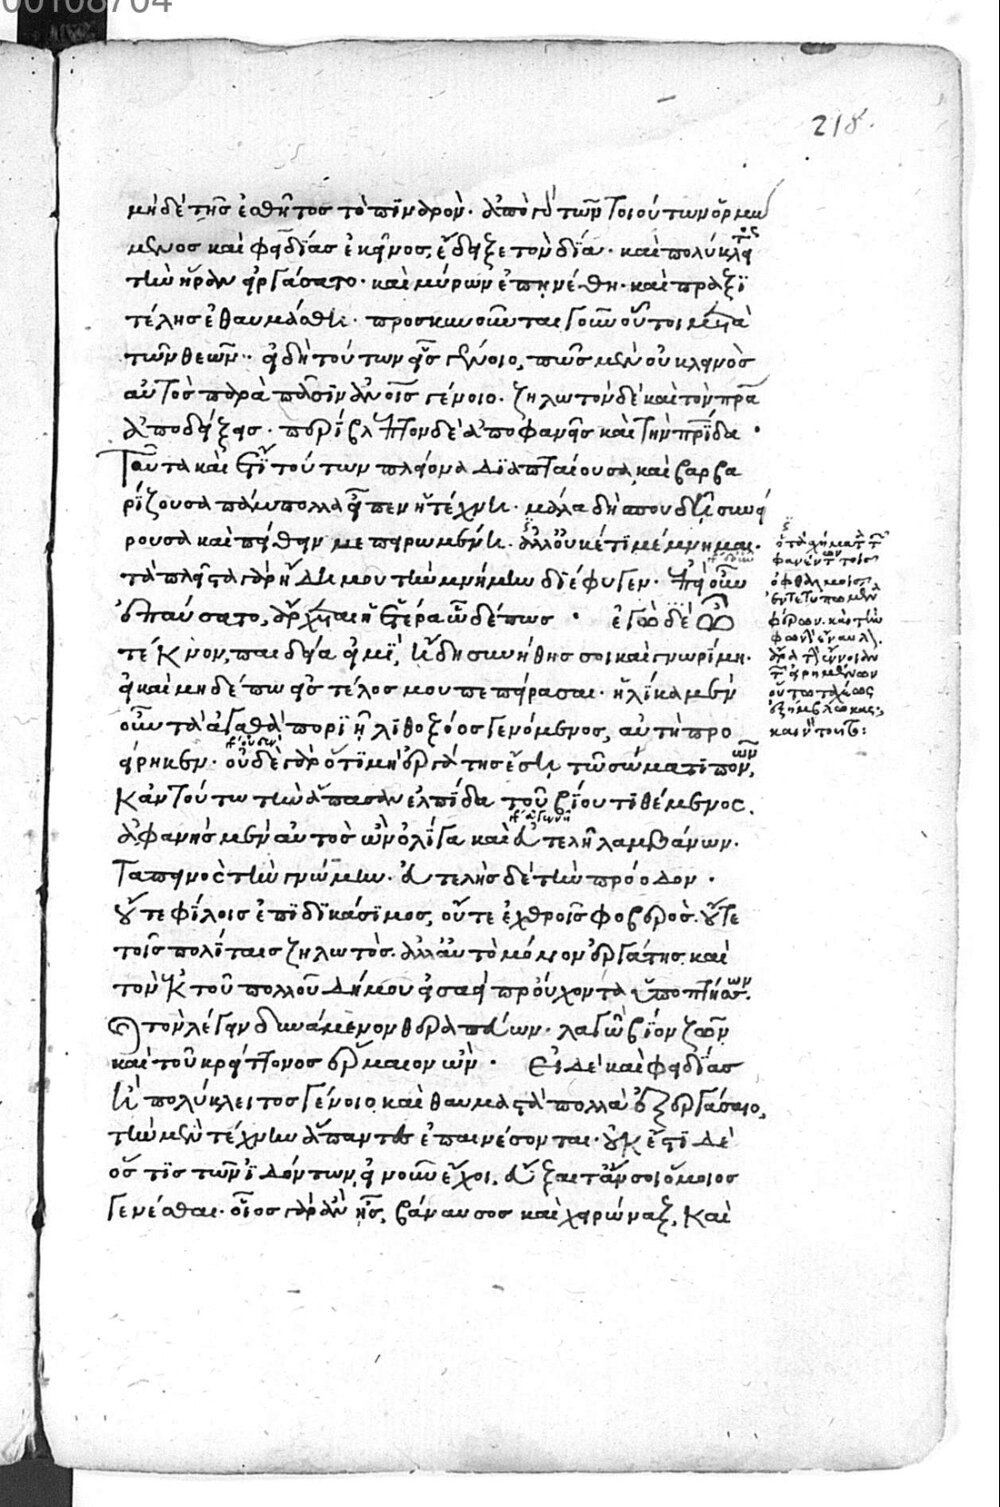 00108704
218.
μηδὲ τῆς ἐσθῆτος τὸ πιναρὸν. ἀπὸ γὰρ τῶν τοιούτων ὁρμώ
μενος καὶ φειδίας ἐκεῖνος, ἔδειξε τὸν δία. καὶ πολύκλειτος
τὴν ἥραν εἰργάσατο. καὶ μύρων ἐπῃνέθη. καὶ πραξι
τέλης ἐθαυμάσθη. προσκυνοῦνται γοῦν οὗτοι μετὰ
τῶν θεῶν. εἰ δὴ τούτων εἷς γένοιο, πῶς μὲν οὐ κλεινὸς
αὐτὸς παρὰ πᾶσιν ἀνοις γένοιο. ζηλωτὸν δὲ καὶ τὸν πρα
ἀποδείξεις. περίβλεπτον δὲ ἀποφανεῖς καὶ τὴν πρίδα.
ταῦτα καὶ ἔτι τούτων πλείονα διαπταίουσα καὶ βαρβα
ρίζουσα πάμπολλα εἶπεν ἡ τέχνη. μάλα δὴ σπουδῇ συνεί
ρουσα καὶ πείθειν με πειρωμένη. ἀλλ' οὐκέτι μέμνημαι.
τὰ πλεῖστα γὰρ ἤδη μου τὴν μνήμην διέφυγεν. ἐπεὶ οὖν
ἐπαύσατο, ἄρχεται ἡ ἑτέρα ὧδέ πως. ἐγὼ δὲ ὦ
τέκνον, παιδεία εἰμὶ, ἤδη συνήθης σοι καὶ γνωρίμη.
εἰ καὶ μηδέπω εἰς τέλος μου πεπείρασαι. ἡλίκα μὲν
οὖν τὰ ἀγαθὰ ποριῇ λιθοξόος γενόμενος, αὐτὴ προ
είρηκεν. οὐδὲν γὰρ ὅτι μὴ ἐργάτης ἔσῃ, τῷ σώματι πονῶν,
κἀν τούτω τὴν ἅπασαν ἐλπίδα τοῦ βίου τιθέμενος.
ἀφανὴς μὲν αὐτὸς ὢν ὀλίγα καὶ ἀτελῆ λαμβάνων.
ταπεινὸς τὴν γνώμην. ἀτελὴς δὲ τὴν πρόοδον.
οὔτε φίλοις ἐπιδικάσιμος, οὔτε ἐχθροῖς φοβερὸς. οὔτε
τοῖς πολίταις ζηλωτὸς. ἀλλ' αὐτὸ μόνον ἐργάτης. καὶ
τῶν ἐκ τοῦ πολλοῦ δήμου εἷς ἀεὶ προύχοντα ὑποπτήσσων.
καὶ τὸν λέγειν δυνάμενον θεραπεύων. λαγὼ βίον ζῶν
καὶ τοῦ κρείττονος ἕρμαιον ὢν. εἰ δὲ καὶ φειδίας
ἢ πολύκλειτος γένοιο καὶ θαυμαστὰ πολλὰ ἐξεργάσαιο,
τὴν μὲν τέχνην ἅπαντες ἐπαινέσονται. οὐκ ἔστι δὲ
ὅς τις τῶν ἰδόντων, εἰ νοῦν ἔχοι, εὔξαιτ' ἄν σοι ὅμοιος
γενέσθαι. οἷος γὰρ ἂν ᾖς, βάναυσος καὶ χειρῶναξ, καὶ